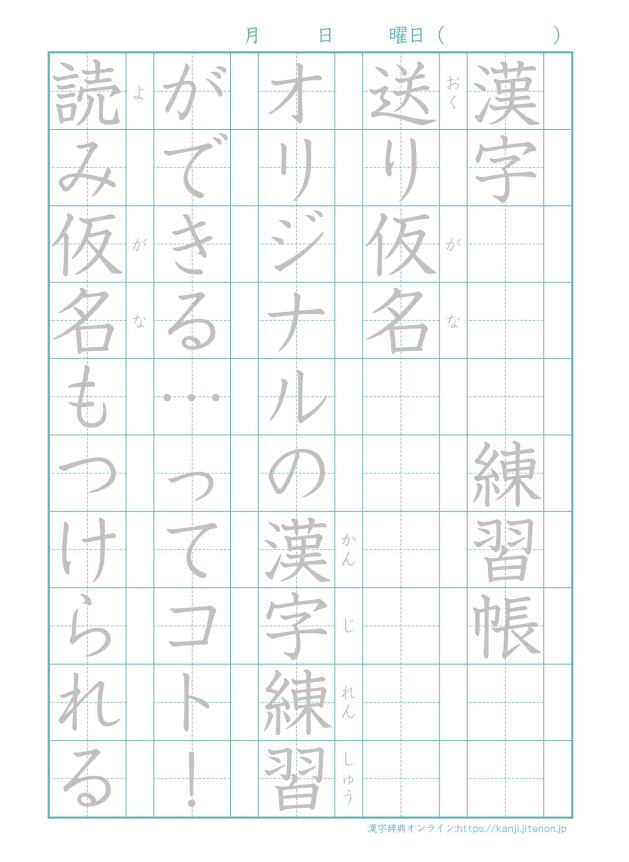 月 日 曜日( )
漢字 練習帳
送り仮名
おく がな
オリジナルの漢字練習
かんじれんしゅう
ができる…ってコト!
読み仮名もつけられる
よ がな
漢字辞典オンライン:https://kanji.jitenon.jp